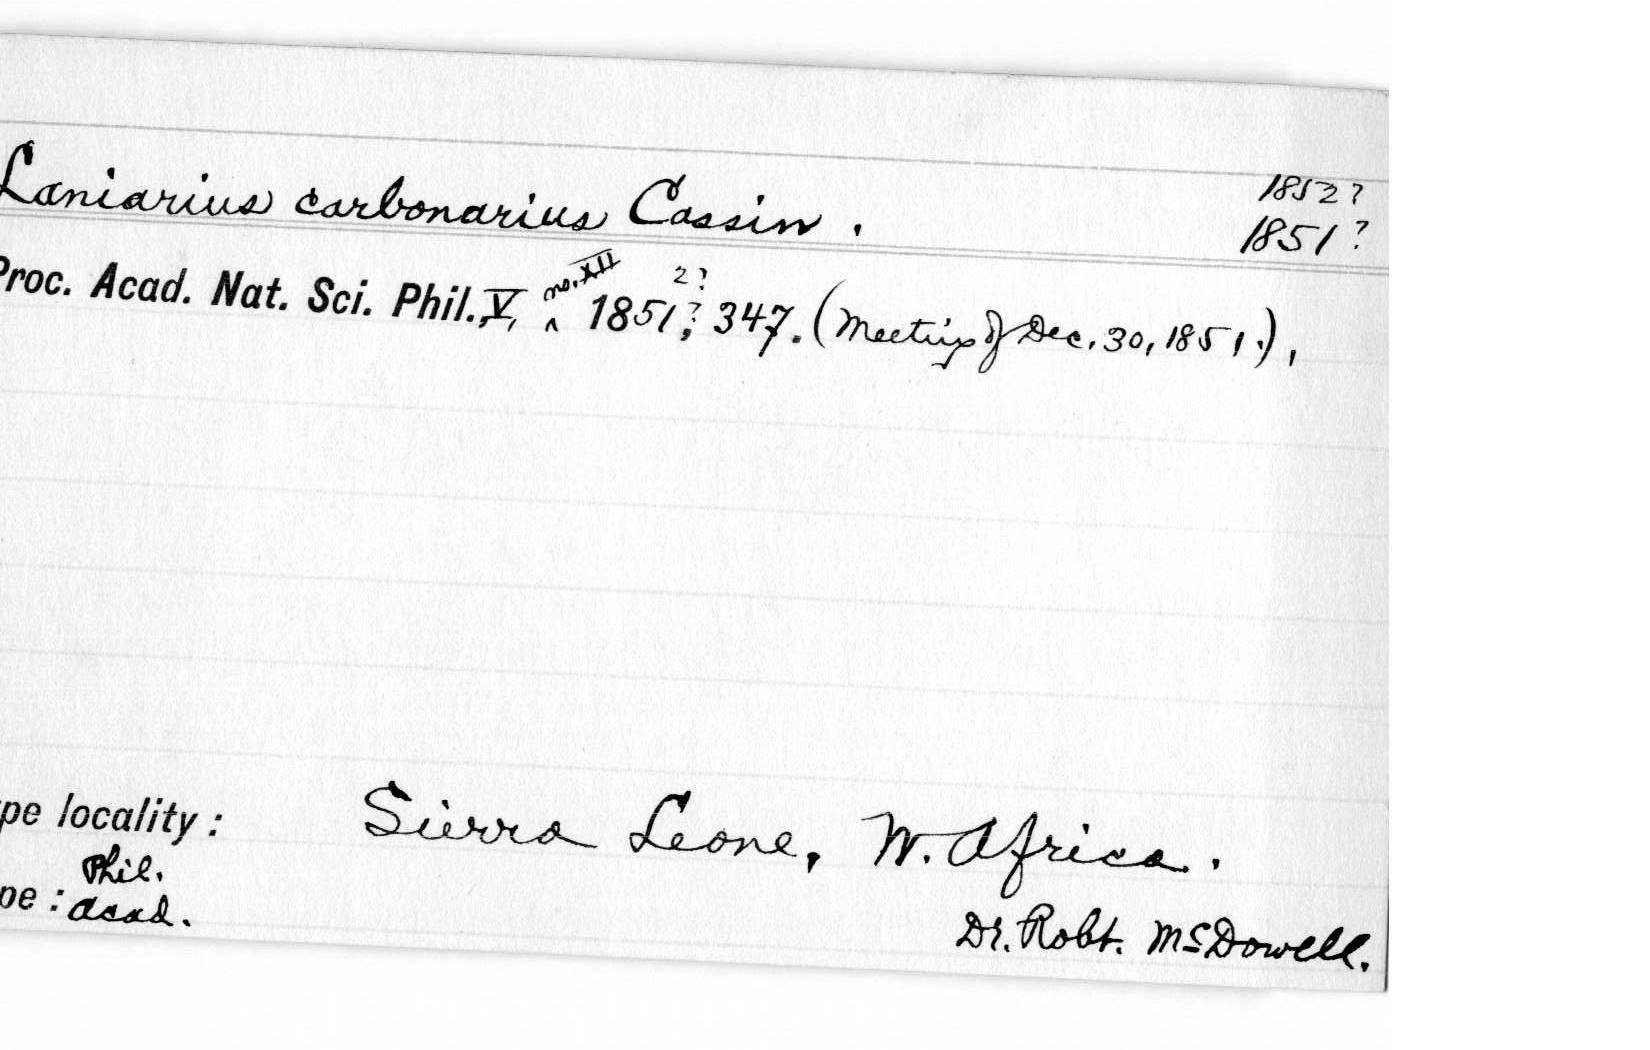 Laniarius carbonarius Cassin.
1852?
1851?
Proc. Acad. Nat. Sci. Phil., V, no. XII 1851?, 2? 347. (Meeting of Dec. 30, 1851.),
pe locality: Sierra Leone, W. Africa.
Phil.
pe: Acad.
Dr. Robt. McDowell.